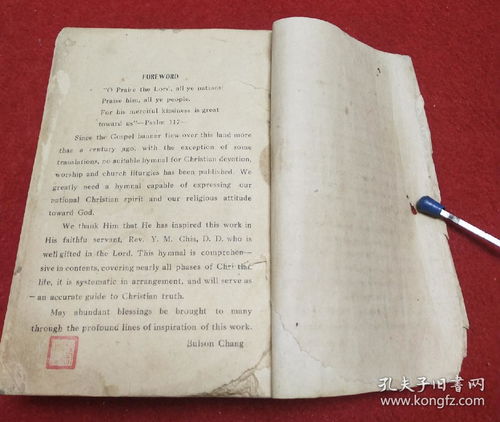 FOREWORD
"O Praise the Lord, all ye nations
Praise him, all ye people.
For his merciful kindness is great
toward us"—Psalm 117—
Since the Gospel banner flew over this land more
than a century ago, with the exception of some
translations, no suitable hymnal for Christian devotion,
worship and church liturgics has been published. We
greatly need a hymnal capable of expressing our
national Christian spirit and our religious attitude
toward God.
We thank Him that He has inspired this work in
His faithful servant, Rev. Y. M. Ghis, D. D. who is
well gifted in the Lord. This hymnal is comprehen—
sive in contents, covering nearly all phases of Christian
life, it is systematic in arrangement, and will serve as
an accurate guide to Christian truth.
May abundant blessings be brought to many
through the profound lines of inspiration of this work.
Buison Chang
孔夫子旧书网
www.kongfz.com